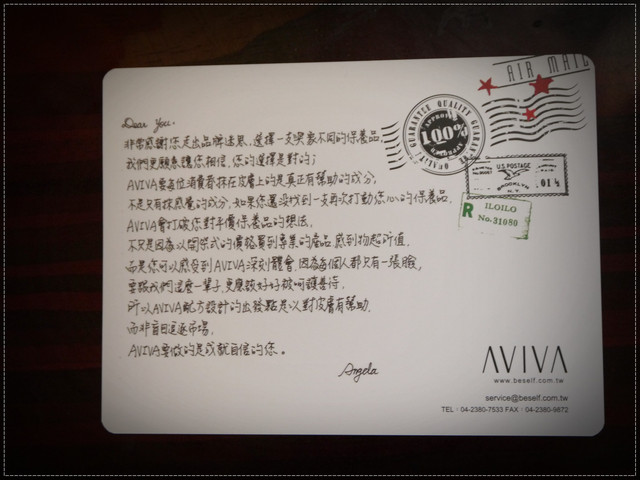 Dear You.
非常感謝您走出品牌迷思、選擇一支與眾不同的保養品,
我們更願意讓您相信,您的選擇是對的;
AVIVA要每位消費者抹在皮膚上的是真正有幫助的成分,
不是只有抹感覺的成分,如果您還沒找到一支再次打動您心的保養品,
AVIVA會打破您對平價保養品的想法,
不只是因為以開架式的價格買到專業的產品,感到物超所值,
而是您可以感受到AVIVA深刻體會,因為每個人都只有一張臉,
要跟我們這麼一輩子,更應該好好被呵護善待,
所以AVIVA配方設計的出發點是以對皮膚有幫助,
而非盲目追逐市場,
AVIVA要做的是成就自信的您。
Angela
AIR MAIL
QUALITY GUARANTEE
APPROVED
100%
APPROVED
U.S. POSTAGE
BROOKLYN
N.Y.
.01½
R
ILOILO
No.31080
AVIVA
www.beself.com.tw
service@beself.com.tw
TEL:04-2380-7533 FAX:04-2380-9872